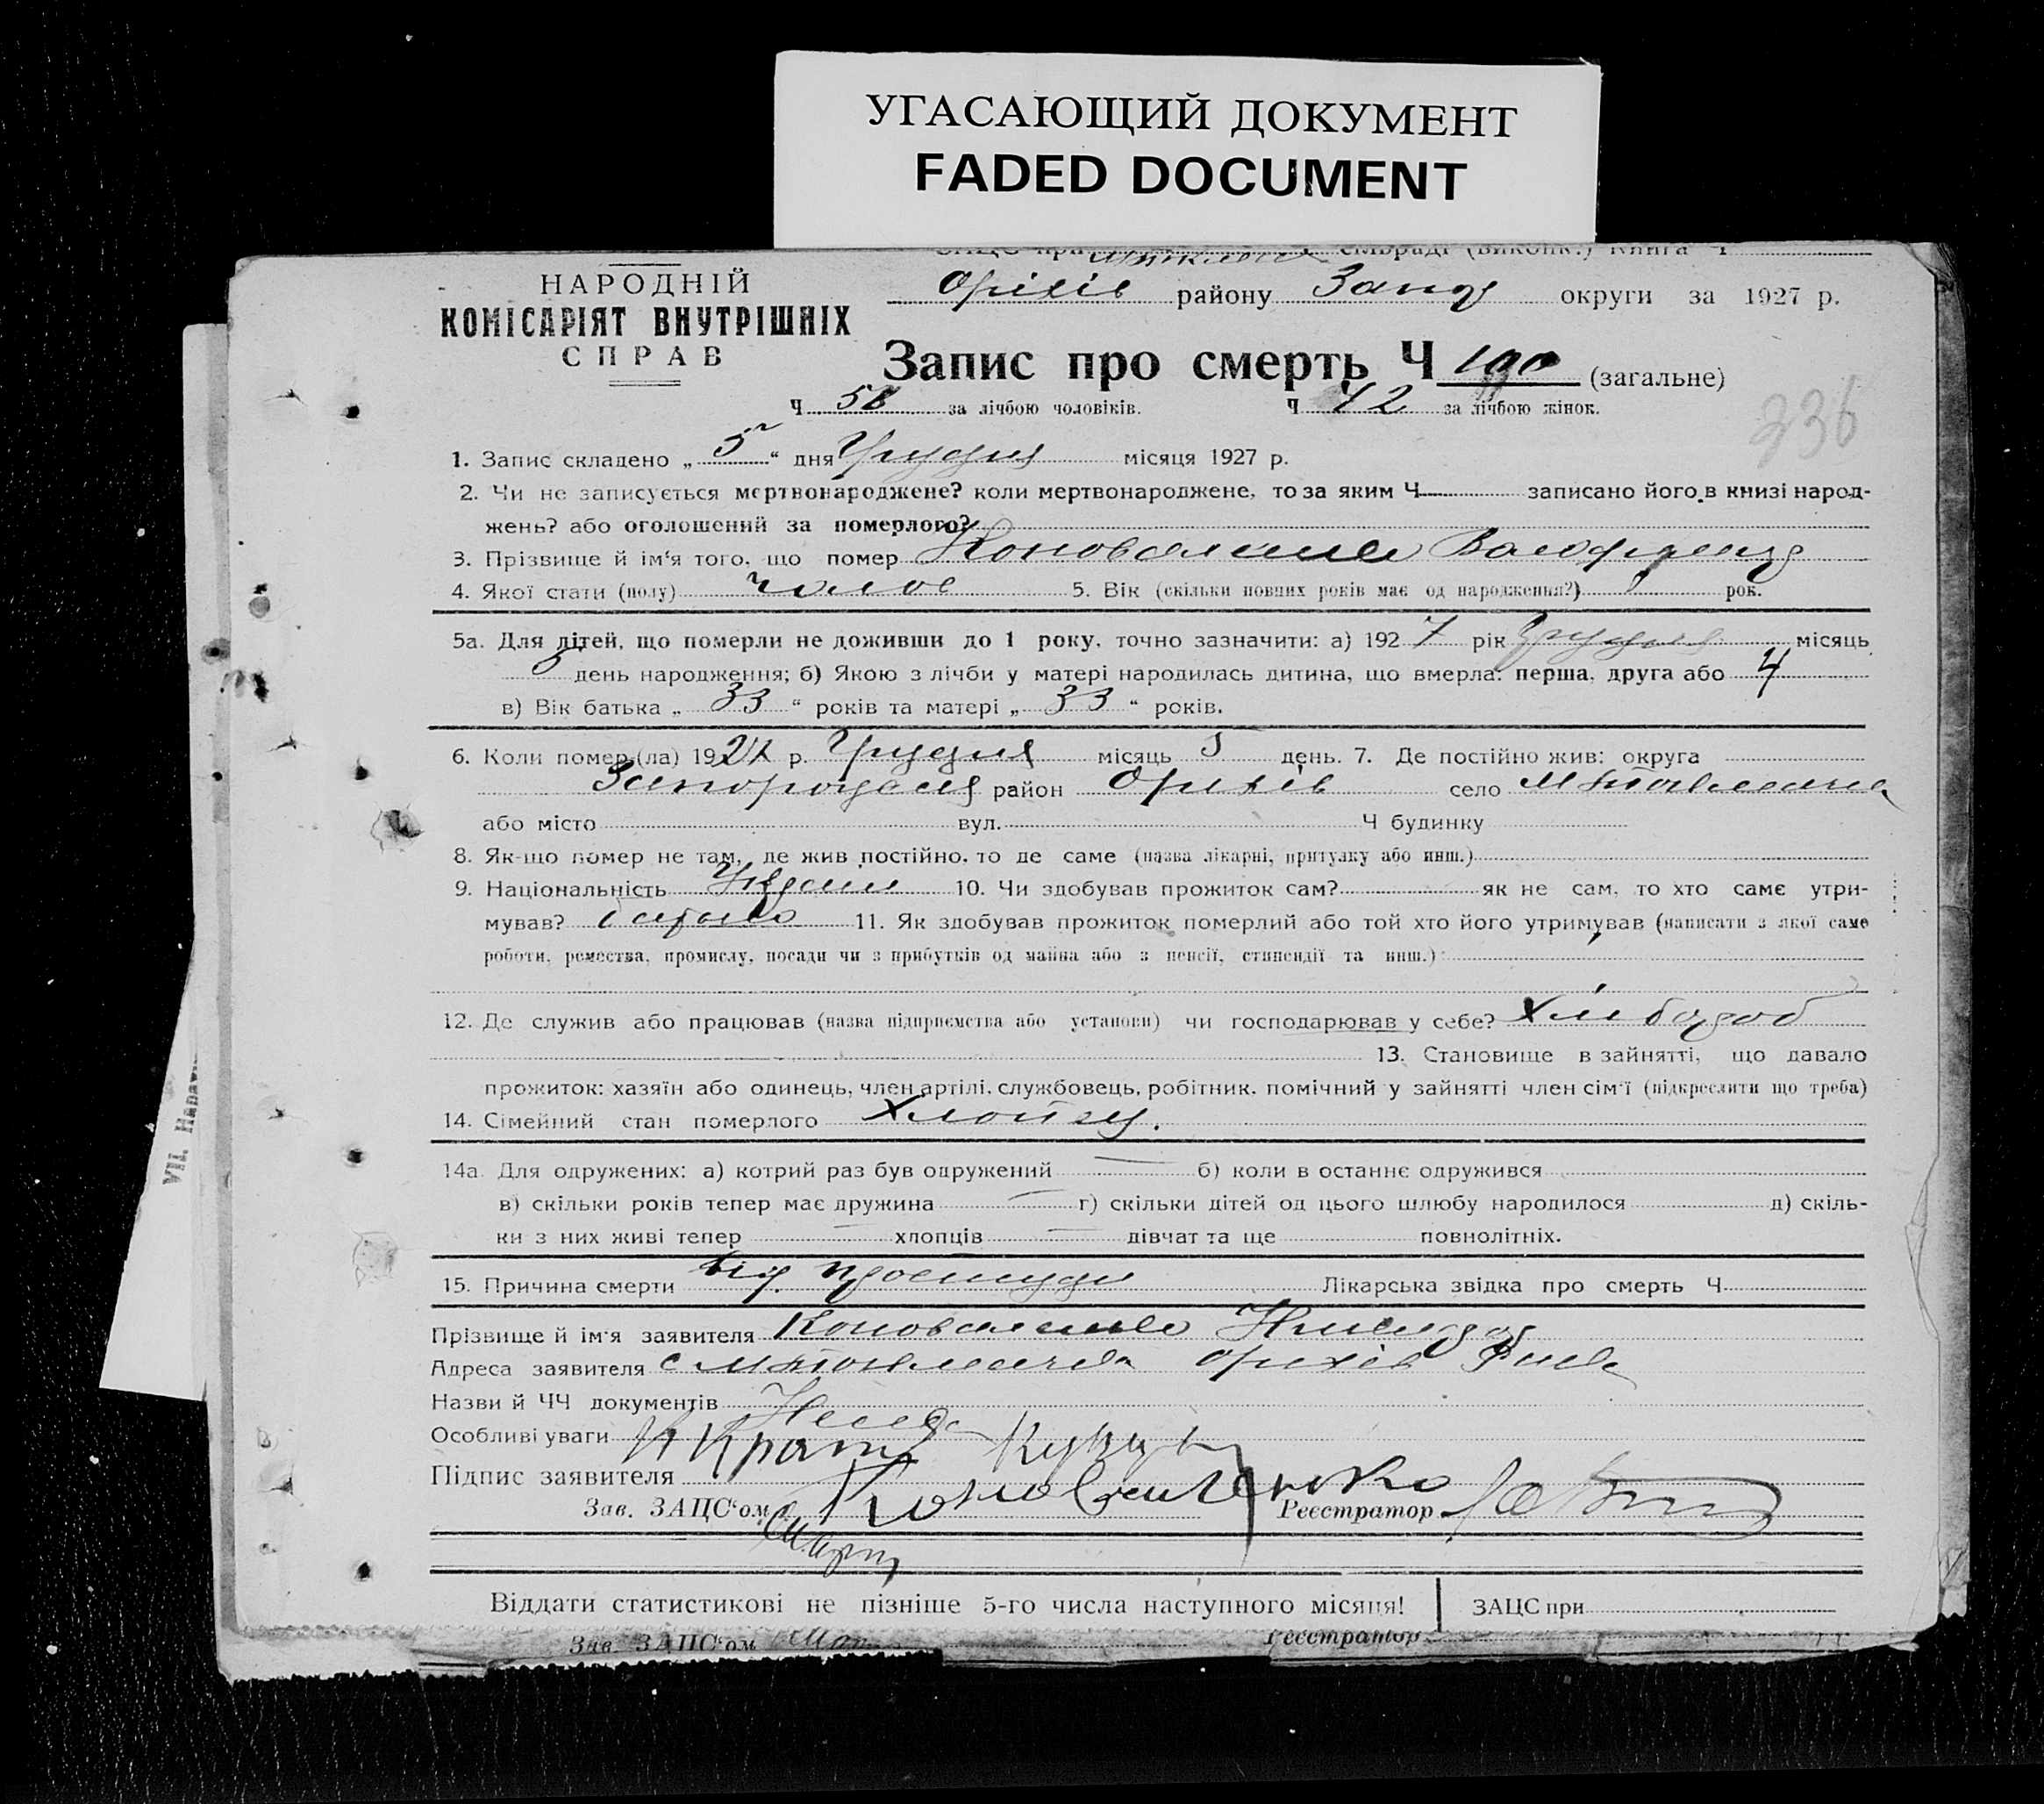 УГАСАЮЩИЙ ДОКУМЕНТ
FADED DOCUMENT
НАРОДНІЙ
КОМІСАРІЯТ ВНУТРІШНІХ
СПРАВ
сільраді (виконк.) Книга Ч
Оріхів району Запор округи за 1927 р.
Запис про смерть Ч 100 (загальне)
Ч 58 за лічбою чоловіків. Ч 42 за лічбою жінок.
236
1. Запис складено „ 5 “ дня Грудня місяця 1927 р.
2. Чи не записується мертвонароджене? коли мертвонароджене, то за яким Ч записано його в книзі народ-
жень? або оголошений за померлого?
3. Прізвище й ім‘я того, що помер Коноваленко
4. Якої стати (полу) чолов 5. Вік (скільки повних років має од народження?) рок.
5а. Для дітей, що померли не доживши до 1 року, точно зазначити: а) 1927 рік Грудня місяць
5 день народження; б) Якою з лічби у матері народилась дитина, що вмерла: перша, друга або 4
в) Вік батька „ 33 “ років та матері „ 33 “ років.
6. Коли помер (ла) 1927 р. Грудня місяць 5 день. 7. Де постійно жив: округа
Запорозська район Оріхів село
або місто вул. Ч будинку
8. Як-що помер не там, де жив постійно, то де саме (назва лікарні, притулку або инш.)
9. Національність 10. Чи здобував прожиток сам? як не сам, то хто саме утри-
мував? батько 11. Як здобував прожиток померлий або той хто його утримував (написати з якої саме
роботи, ремества, промислу, посади чи з прибутків од майна або з пенсії, стипендії та инш.)
12. Де служив або працював (назва підприємства або установи) чи господарював у себе? Хлібороб
13. Становище в зайнятті, що давало
прожиток: хазяїн або одинець, член артілі, службовець, робітник, помічний у зайнятті член сім‘ї (підкреслити що треба)
14. Сімейний стан померлого Хлопец.
14а. Для одружених: а) котрий раз був одружений б) коли в останнє одружився
в) скільки років тепер має дружина г) скільки дітей од цього шлюбу народилося д) скіль-
ки з них живі тепер хлопців дівчат та ще повнолітніх.
15. Причина смерти від простуди Лікарська звідка про смерть Ч
Прізвище й ім‘я заявителя Коноваленко
Адреса заявителя с Оріхів
Назви й ЧЧ документів
Особливі уваги
Підпис заявителя Коноваленко
Зав. ЗАЦС‘ом Реєстратор
Віддати статистикові не пізніше 5-го числа наступного місяця! ЗАЦС при
Зав. ЗАЦС‘ом Реєстратор